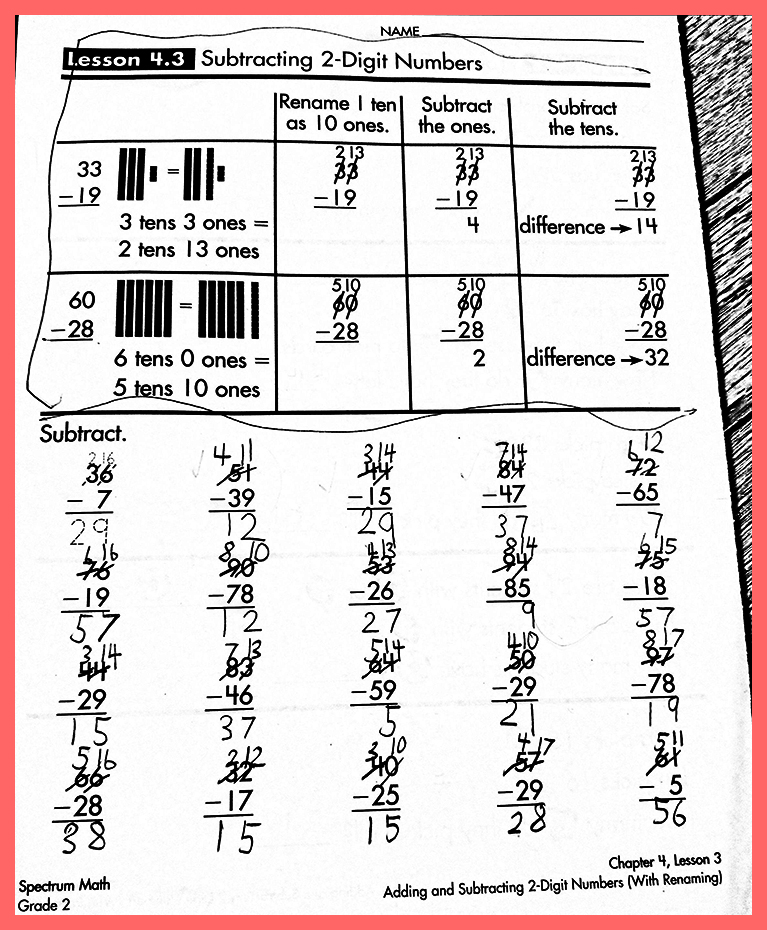 NAME
Lesson 4.3 Subtracting 2-Digit Numbers
Rename 1 ten as 10 ones. Subtract the ones. Subtract the tens.
2 13 2 13 2 13
33 = 33 33 33
−19 −19 −19 −19
3 tens 3 ones = 4 difference → 14
2 tens 13 ones
5 10 5 10 5 10
60 = 60 60 60
−28 −28 −28 −28
6 tens 0 ones = 2 difference → 32
5 tens 10 ones
Subtract.
2 16 4 11 3 14 7 14 6 12
36 51 44 84 72
− 7 −39 −15 −47 −65
29 12 29 37 7
6 16 8 10 4 13 8 14 6 15
76 90 53 94 75
−19 −78 −26 −85 −18
57 12 27 9 57
3 14 7 13 5 14 4 10 8 17
44 83 64 50 97
−29 −46 −59 −29 −78
15 37 5 21 19
5 16 2 12 3 10 4 17 5 11
66 32 40 57 61
−28 −17 −25 −29 − 5
38 15 15 28 56
Chapter 4, Lesson 3
Spectrum Math Adding and Subtracting 2-Digit Numbers (With Renaming)
Grade 2